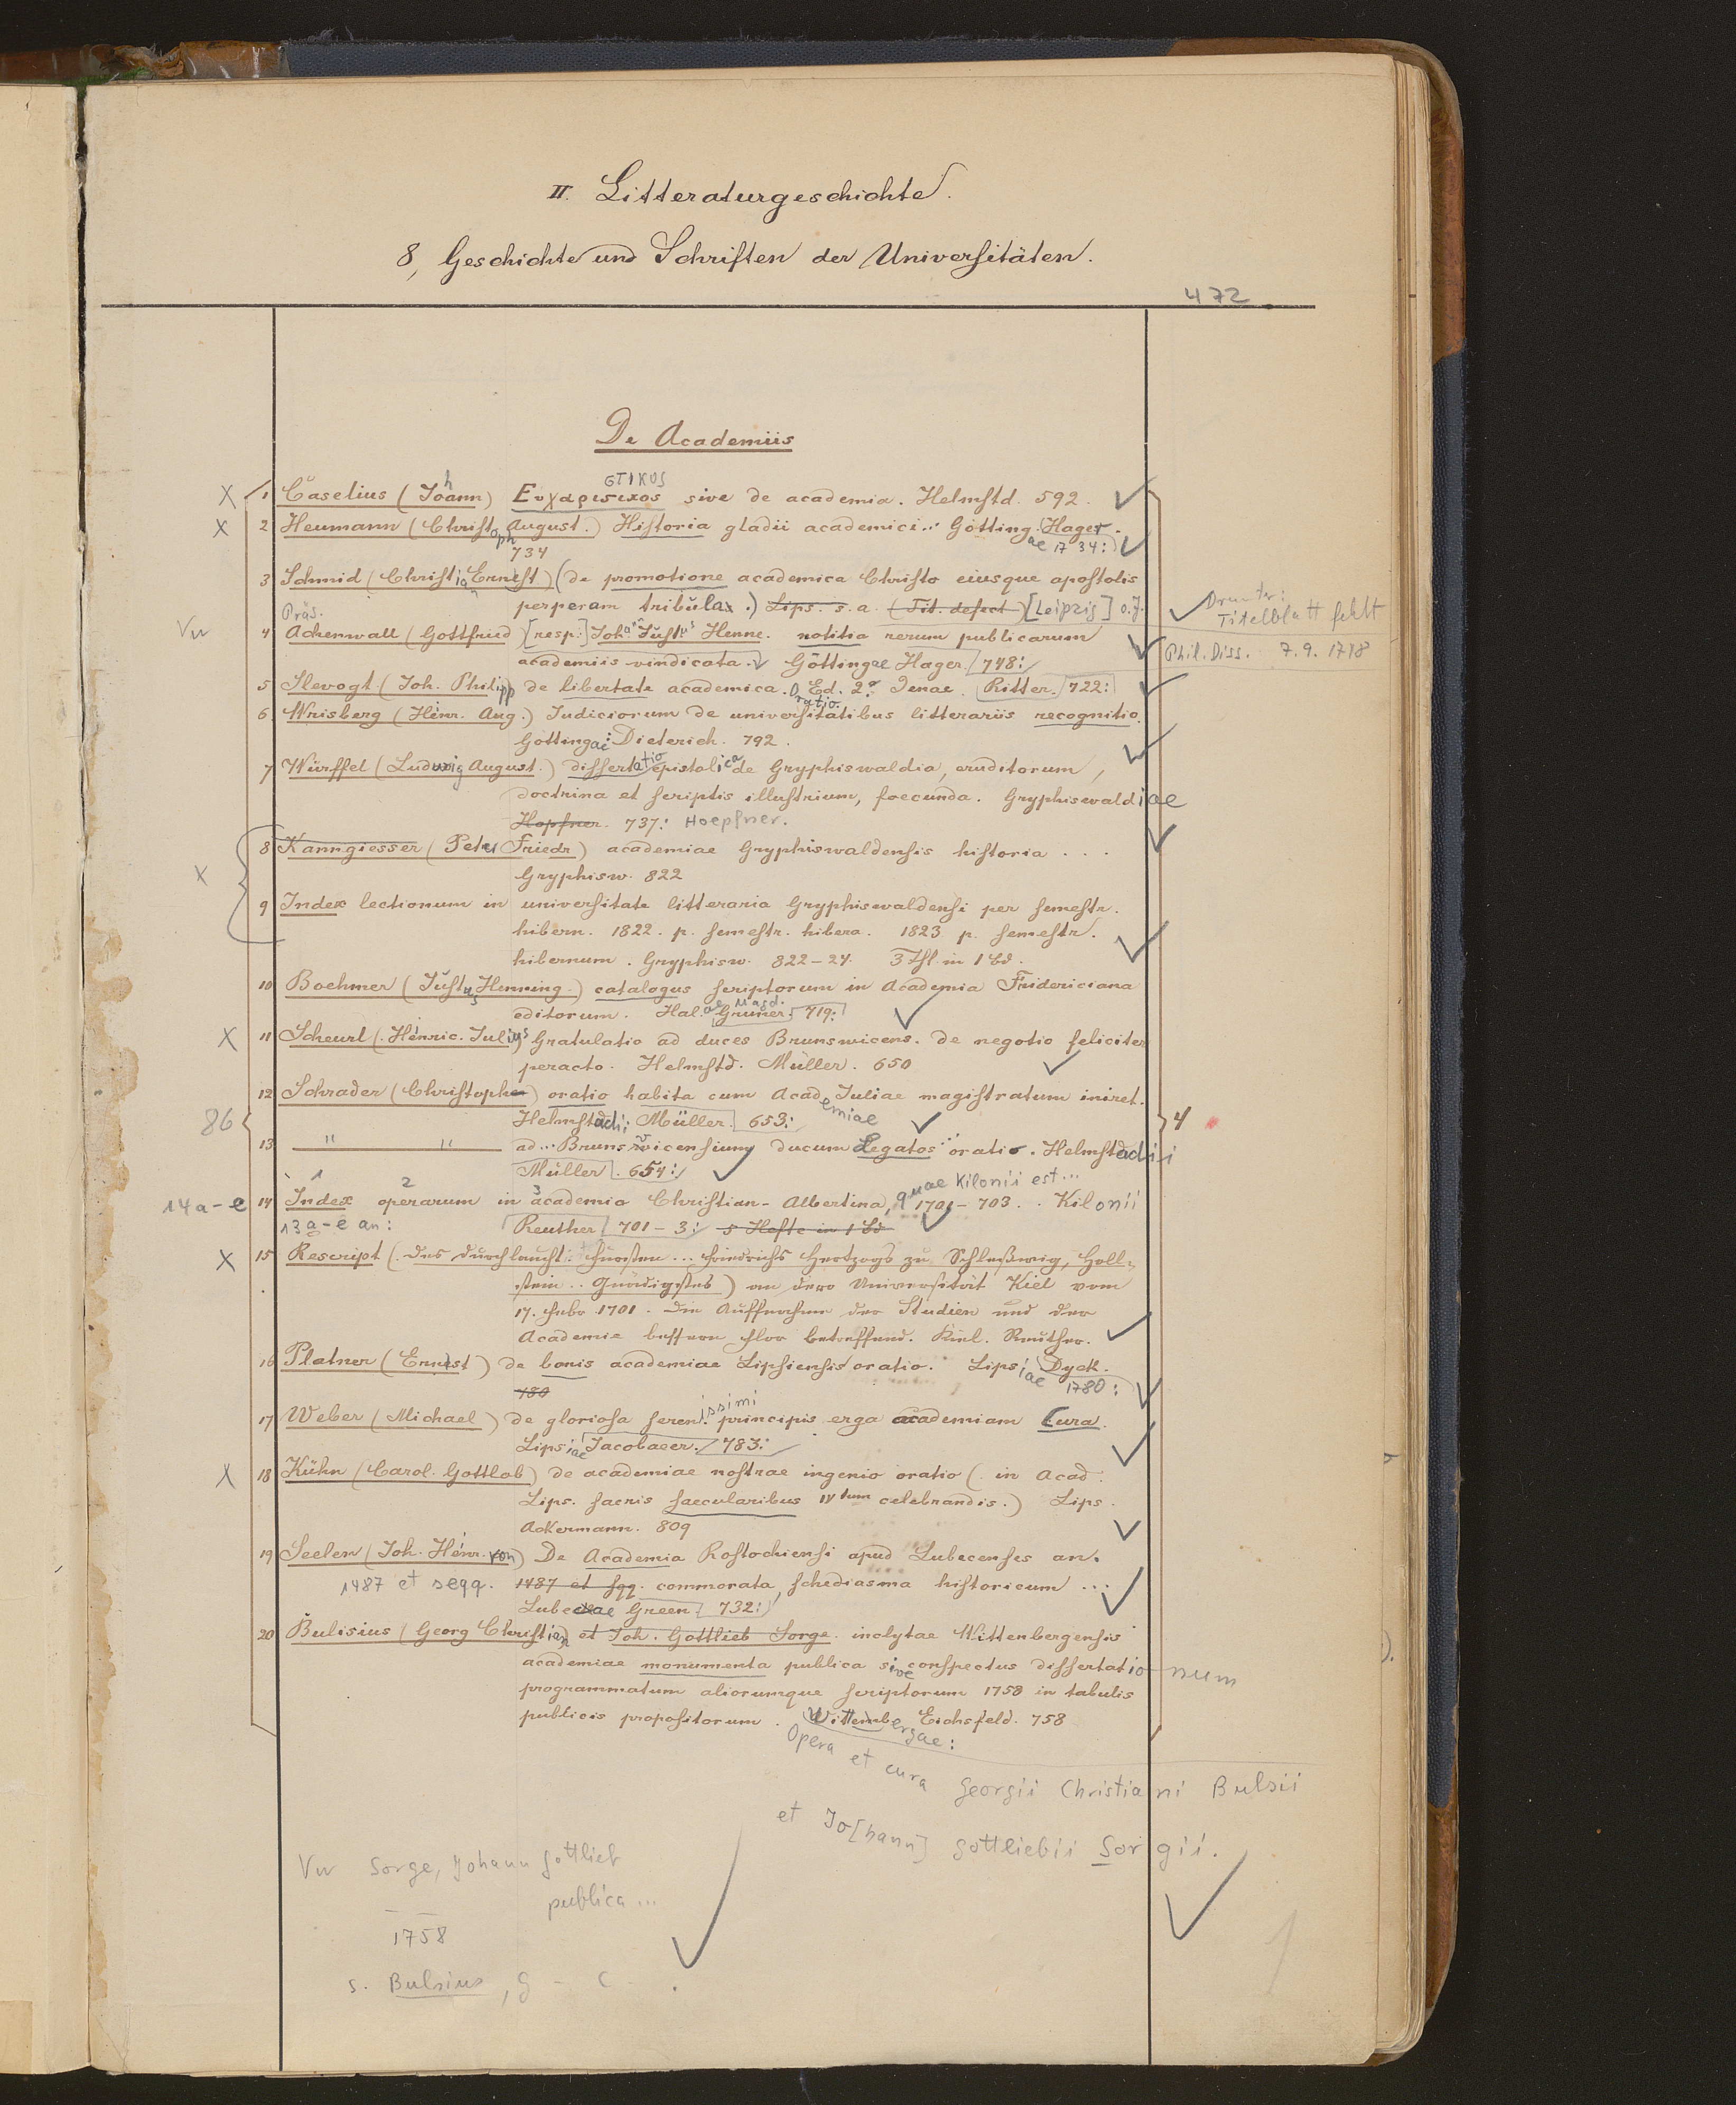 II. Litteraturgeschichte.
8, Geschichte und Schriften der Universitäten.
472
De Academiis
στικος
X 1 Caselius (Johann) Ευχαριςικος sive de academia. Helmstd. 592.
X 2 Heumann (Christoph August.) Historia gladii academici... Gotting. Hager.
734 ae 1734:
3 Schmid (Christian Ernest) (de promotione academica Christo eiusque apostolis
perperam tributa.) Lips. s. a. (Tit. defect) [Leipzig] o. J.
Titelblatt fehlt
Präs.
Vw 4 Achenwall (Gottfried) [resp:] Johann Justus Henne. notitia rerum publicarum
academiis vindicata. Göttingae Hager. 748:
Phil. Diss. 7.9.1748
5 Slevogt (Joh. Philipp) de libertate academica. Oratio. Ed. 2a Jenae. Ritter. 722:
6 Wrisberg (Heinr. Aug.) Judiciorum de universitatibus litterariis recognitio.
Gottingae: Dieterich. 792.
7 Würffel (Ludwig August.) dissertatio epistolica de Gryphiswaldia, eruditorum,
doctrina et scriptis illustrium, foecunda. Gryphiswaldiae
Hopfner. 737: Hoepfner.
8 Kanngiesser (Peter Friedr) academiae Gryphiswaldensis historia ...
Gryphisw. 822
X
9 Index lectionum in universitate litteraria Gryphiswaldensi per semestr.
hibern. 1822. p. semestr. hibera. 1823 p. semestr.
hibernum. Gryphisw. 822-24. 3 Thl. in 1 Bd.
10 Boehmer (Justus Henning.) catalogus scriptorum in Academia Fridericiana
editorum. Hal.ae Magd. Gruner. 719:
X 11 Scheurl (Heinric. Julius) Gratulatio ad duces Brunswicens. de negotio feliciter
peracto. Helmstd. Müller. 650
12 Schrader (Christopher) oratio habita cum Academiae Juliae magistratum iniret.
86 Helmstadii: Müller. 653: 4
13 " " ad... Brunsvicensium ducum Legatos... oratio. Helmstadii
Müller. 654:
1 2 3 quae Kilonii est...
14a-e 14 Index operarum in academia Christian-Albertina, 1701-703. . Kilonii
13a-e an: Reuther 701-3: 5 Hefte in 1 Bd
X 15 Rescript (. Des Durchlaucht: Fürsten... Friedrichs Hertzogs zu Schleßwig, Holl-
stein .. Gnädigstes) an dero Universität Kiel vom
17. Febr 1701. die Auffnehmen der Studien und der
Academie bessern Flor betreffend. Kiel. Reuther.
16 Platner (Ernest) de bonis academiae Lipsiensis oratio. Lipsiae Dyck.
780 1780:
17 Weber (Michael) de gloriosa serenissimi principis erga academiam Cura.
Lipsiae Jacobaeer. 783:
X 18 Kühn (Carol. Gottlob) de academiae nostrae ingenio oratio (. in Acad.
Lips. sacris saecularibus IVtum celebrandis.) Lips.
Ackermann. 809
19 Seelen (Joh. Heinr. von) De Academia Rostochiensi apud Lubecenses an.
1487 et seqq. 1487 et sqq. commorata, schediasma historicum ...
Lubecae Green. 732:
20 Bulisius (Georg Christian) et Joh. Gottlieb Sorge. inclytae Wittenbergensis
academiae monumenta publica sive conspectus dissertationum
programmatum aliorumque scriptorum 1758 in tabulis
publicis propositorum. Wittembergae: Eichsfeld. 758
Opera et cura Georgii Christiani Bulsii
et Jo[hann] Gottliebii Sorgii.
Vw Sorge, Johann Gottlieb
publica ...
1758
s. Bulsius, G - C - .